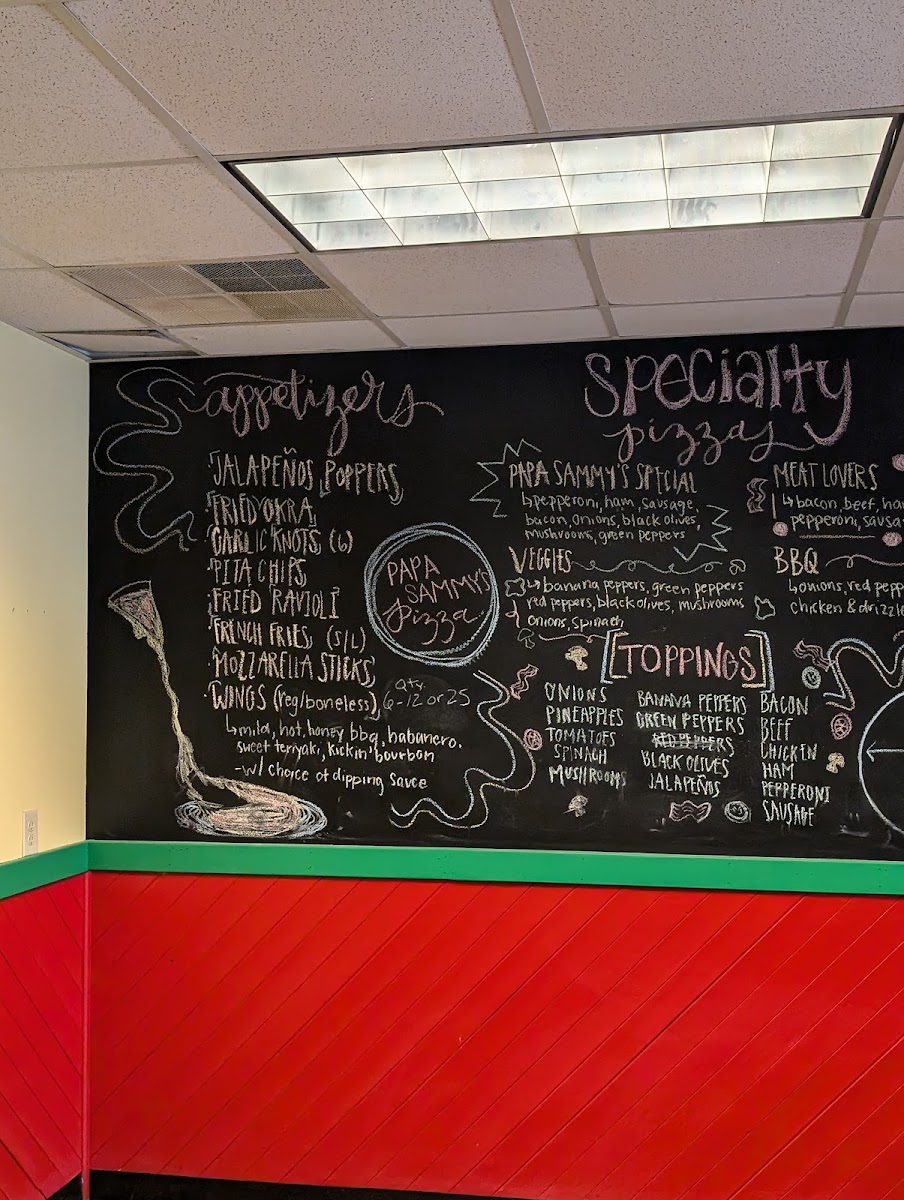 appetizers
JALAPEÑOS POPPERS
FRIED OKRA
GARLIC KNOTS (6)
PITA CHIPS
FRIED RAVIOLI
FRENCH FRIES (S/L)
MOZZARELLA STICKS
WINGS (reg/boneless)
qty
6-12 or 25
mild, hot, honey bbq, habanero,
sweet teriyaki, kickin' bourbon
-w/ choice of dipping sauce
PAPA
SAMMY'S
pizza
Specialty
pizzas
PAPA SAMMY'S SPECIAL
pepperoni, ham, sausage,
bacon, onions, black olives,
mushrooms, green peppers
VEGGIES
banana peppers, green peppers
red peppers, black olives, mushrooms
onions, spinach
MEAT LOVERS
bacon, beef,
pepperoni,
BBQ
onions, red
chicken & drizzle
[TOPPINGS]
ONIONS
PINEAPPLES
TOMATOES
SPINACH
MUSHROOMS
BANANA PEPPERS
GREEN PEPPERS
RED PEPPERS
BLACK OLIVES
JALAPEÑOS
BACON
BEEF
CHICKEN
HAM
PEPPERONI
SAUSAGE